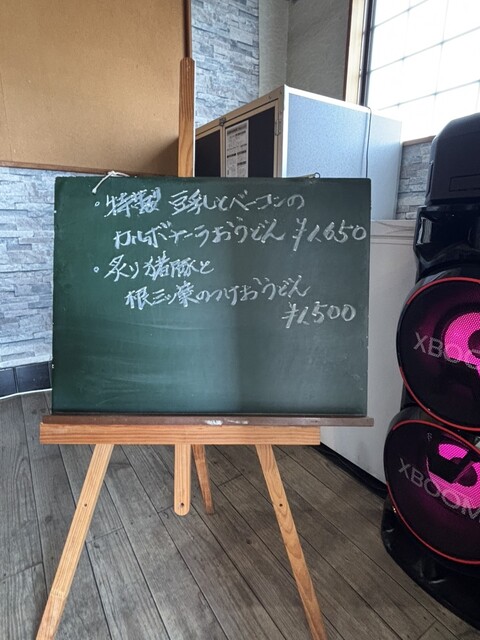 ・特製 豆乳とベーコンの
カルボナーラおうどん ¥1,650
・炙り猪豚と
根三ッ葉のつけおうどん
¥1,500
XBOOM
XBOOM